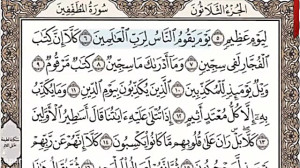 الجُزْءُ الثَّلَاثُونَ سُورَةُ المُطَفِّفِينَ
لِيَوْمٍ عَظِيمٍ ٥ يَوْمَ يَقُومُ النَّاسُ لِرَبِّ الْعَالَمِينَ ٦ كَلَّا إِنَّ كِتَابَ
الْفُجَّارِ لَفِي سِجِّينٍ ٧ وَمَا أَدْرَاكَ مَا سِجِّينٌ ٨ كِتَابٌ مَرْقُومٌ ٩
وَيْلٌ يَوْمَئِذٍ لِلْمُكَذِّبِينَ ١٠ الَّذِينَ يُكَذِّبُونَ بِيَوْمِ الدِّينِ ١١ وَمَا يُكَذِّبُ
بِهِ إِلَّا كُلُّ مُعْتَدٍ أَثِيمٍ ١٢ إِذَا تُتْلَى عَلَيْهِ آيَاتُنَا قَالَ أَسَاطِيرُ الْأَوَّلِينَ
١٣ كَلَّا بَلْ رَانَ عَلَى قُلُوبِهِمْ مَا كَانُوا يَكْسِبُونَ ١٤ كَلَّا إِنَّهُمْ عَنْ رَبِّهِمْ